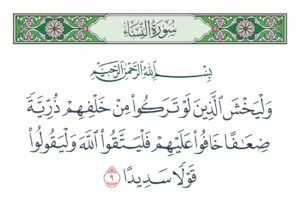 سُورَةُ النِّسَاءِ
بِسْمِ اللَّهِ الرَّحْمَٰنِ الرَّحِيمِ
وَلْيَخْشَ الَّذِينَ لَوْ تَرَكُوا مِنْ خَلْفِهِمْ ذُرِّيَّةً
ضِعَافًا خَافُوا عَلَيْهِمْ فَلْيَتَّقُوا اللَّهَ وَلْيَقُولُوا
قَوْلًا سَدِيدًا ٩